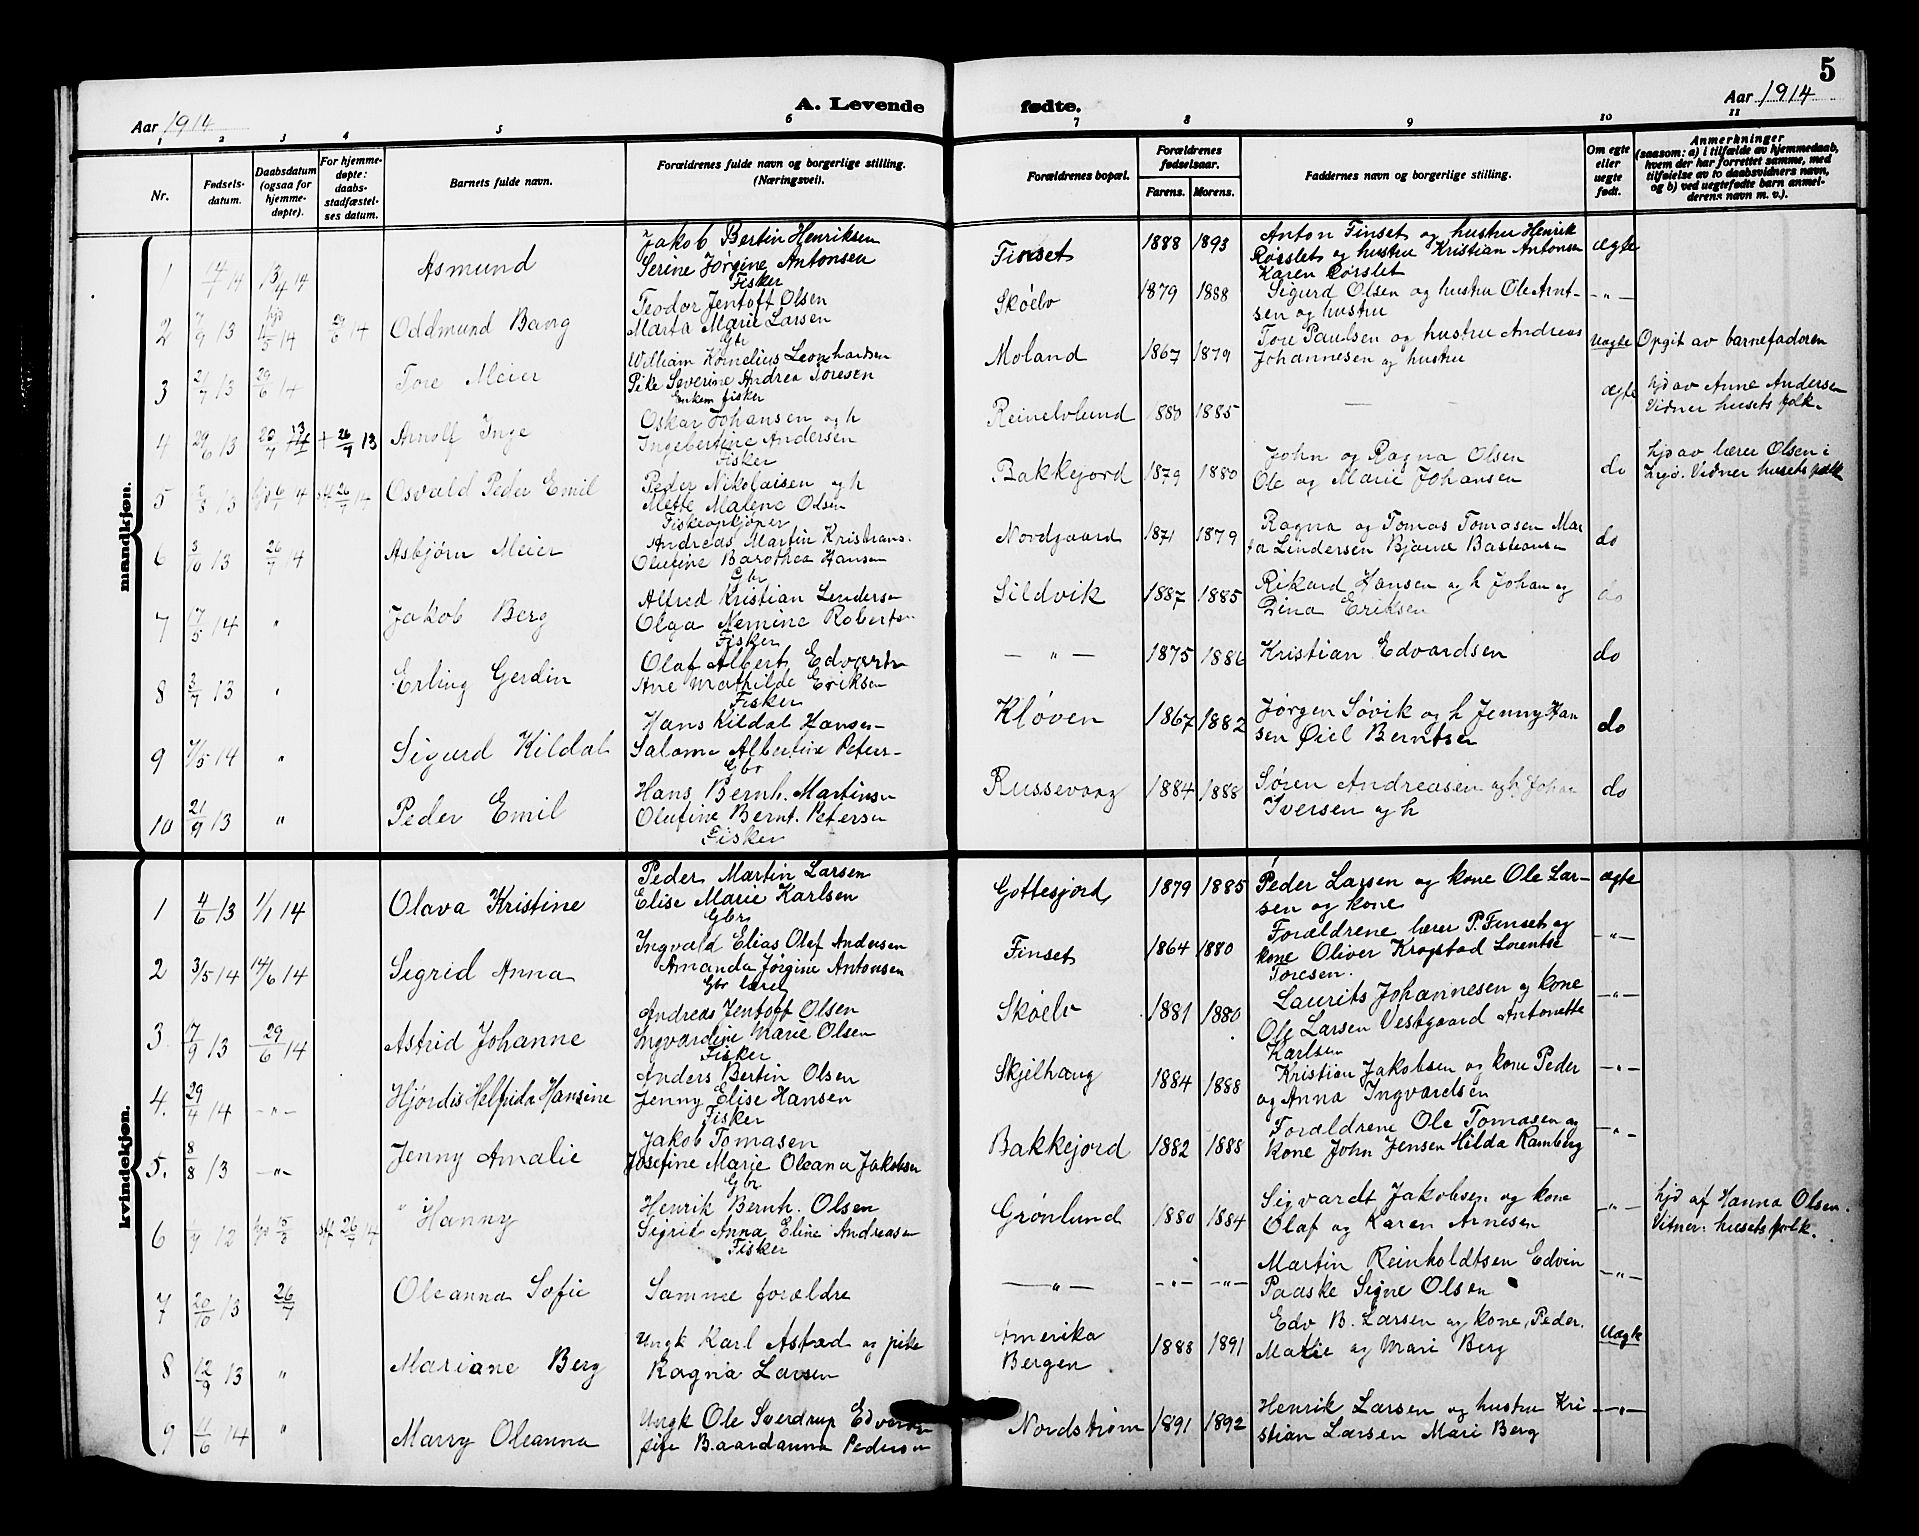 5
A. Levende fødte.
Aar 1914
Aar 1914
1 2 3 4 5 6 7 8 9 10 11
Nr.
Fødsels-
datum.
Daabsdatum
(ogsaa for
hjemme-
døpte).
For hjemme-
døpte:
daabs-
stadfæstel-
ses datum.
Barnets fulde navn.
Forældrenes fulde navn og borgerlige stilling.
(Næringsvei).
Forældrenes bopæl.
Forældrenes
fødselsaar.
Farens. Morens.
Faddernes navn og borgerlige stilling.
Om egte
eller
uegte
født.
Anmerkninger
(saasom: a) i tilfælde av hjemmedaab,
hvem der har forrettet samme, med
tilføielse av to daabsvidners navn,
og b) ved uegtefødte barn anmel-
derens navn m. v.).
mandkjøn.
1 13/4 14 Asmund
Jakob Bertin Henriksen
Serine Jørgine Antonsen
Fisker
Finset 1888 1893
Anton Finset og hustru Henrik
Rørslet og hustru Kristian Antonsen
Karen Rørslet
ægte
2 7/9 13 hjd 14 29/6 14 Oddmund Bang
Teodor Jentoft Olsen
Marta Marie Larsen
Gbr
Skøelv 1879 1888
Sigurd Olsen og hustru Ole Arnt-
sen og hustru
-"-
3 21/7 13 29/6 14 Tore Meier
William Kornelius Leonhardsen
Pike Severine Andrea Toresen
Enkem fisker
Moland 1867 1879
Tore Paulsen og hustru Andreas
Johannesen og hustru
Uægte Opgit av barnefaderen
4 29/6 13 20/7 + 26/7 13 Arnolf Inge
Oskar Johansen og h
Ingebertine Andersen
Fisker
Reinelvlund 1880 1885 — —
ægte
hjd av Anne Andersen
Vidner husets folk.
5 13 hjd 6/7 14 stf 26/7 14 Osvald Peder Emil
Peder Nikolaisen og h
Mette Malene Olsen
Fiskeopkjøper
Bakkejord 1879 1880
John og Ragna Olsen
Ole og Marie Johansen
do
hjd av lærer Olsen i
Vidner husets folk
6 3/10 13 26/7 14 Asbjørn Meier
Andreas Martin Kristians.
Olufine Barothea Hansen
Gbr
Nordgaard 1871 1879
Ragna og Tomas Tomasen Mar
ta Lindersen Bjarne Bastiansen
do
7 17/5 14 " Jakob Berg
Alfred Kristian Linderse
Olga Nemine Roberts
Fisker
Sildvik 1887 1885
Rikard Hansen og h Johan og
Dina Eriksen
do
8 3/7 13 " Erling Gerdin
Olaf Albert Edvards
Ane Mathilde Eriksen
Fisker
— " — 1875 1886
Kristian Edvardsen
do
9 7/5 14 " Sigurd Kildal
Hans Kildal Hansen
Salome Albertine Peters-
Gbr
Kløven 1867 1882
Jørgen Søvik og h Jenny Han
sen Øiel Berntsen
do
10 21/9 13 " Peder Emil
Hans Bernh. Martinsen
Olufine Bernt. Petersen
Fisker
Russevaag 1884 1888
Søren Andreasen og h. Johan
Iversen og h
do
kvindekjøn.
1 4/6 13 1/1 14 Olava Kristine
Peder Martin Larsen
Elise Marie Karlsen
Gbr
Gottesjord 1879 1885
Peder Larsen og kone Ole Lar-
sen og kone
ægte
2 3/5 14 14/6 14 Sigrid Anna
Ingvald Elias Olaf Andersen
Amanda Jørgine Antonsen
Gbr lærer
Finset 1864 1880
Forældrene lærer P. Finset og
kone Oliver Krogstad Lorentse
Toresen.
-"-
3 17/9 13 29/6 14 Astrid Johanne
Andreas Jentoft Olsen
Ingvardine Marie Olsen
Fisker
Skøelv 1881 1880
Laurits Johannesen og kone
Ole Larsen Vestgaard Antonette
Karlsen
-"-
4. 29/4 14 -"- Hjørdis Helfrida Hansine
Anders Bertin Olsen
Jenny Elise Hansen
Fisker
Skjelhaug 1884 1888
Kristian Jakobsen og kone Peder
og Anna Ingvardsen
-"-
5. 8/8 13 -"- Jenny Amalie
Jakob Tomasen
Josefine Marie Oleana Jakobsen
Gbr
Bakkejord 1882 1888
Forældrene Ole Tomasen og
kone John Jensen Hilda Ramberg
-"-
6 12 stf 26/7 14 Hanny
Henrik Bernh. Olsen
Sigrid Anna Eline Andreasen
Fisker
Grønlund 1880 1884
Sigvardt Jakobsen og kone
Olaf og Karen Arnesen
-"-
hjd af Hanna Olsen.
Vitner: husets folk.
7 20/10 13 26/7 Oleanna Sofie
Samme forældre
— " — -"- -"-
Martin Reinholdtsen Edvin
Paaske Signe Olsen
-"-
8 12/9 13 " Mariane Berg
Ungk Karl Astad og pike
Ragna Larsen
Amerika
Bergen
1888 1891
Edv B. Larsen og kone, Peder.
Marie og Mari Berg
Uægte
9 14 " Marry Oleanna
Ungk Ole Sverdrup Edvards
pige Baardanna Pedersen
Nordstrøm 1891 1892
Henrik Larsen og hustru Kri
stian Larsen Mari Berg
-"-